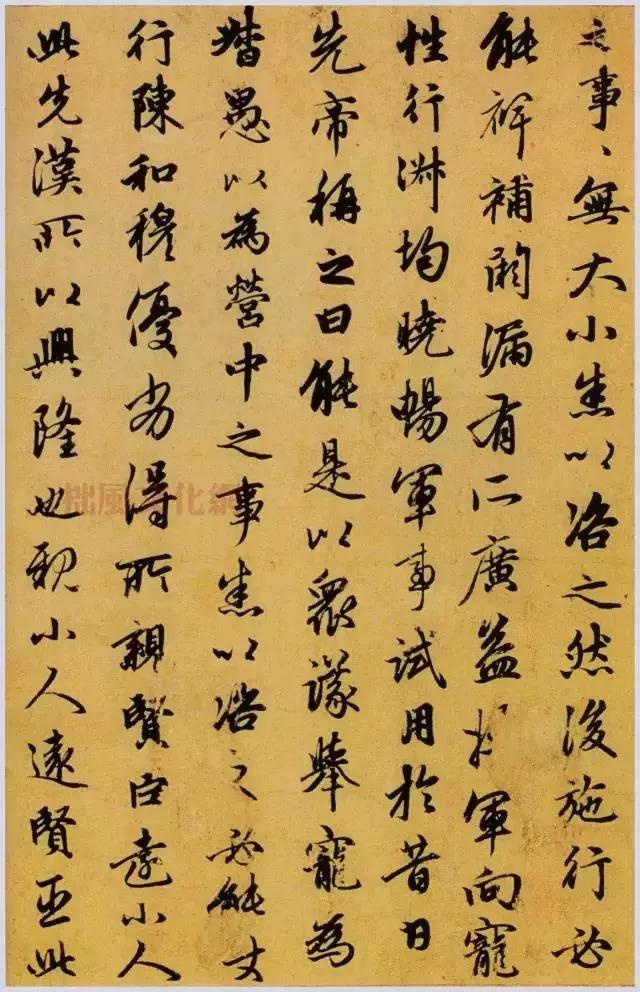 之事、無大小悉以咨之然後施行必
能裨補闕漏有所廣益將軍向寵
性行淑均曉暢軍事試用於昔日
先帝稱之曰能是以衆議舉寵為
督愚以為營中之事悉以咨之必能使
行陳和穆優劣得所親賢臣遠小人
此先漢所以興隆也親小人遠賢臣此
拙風文化網